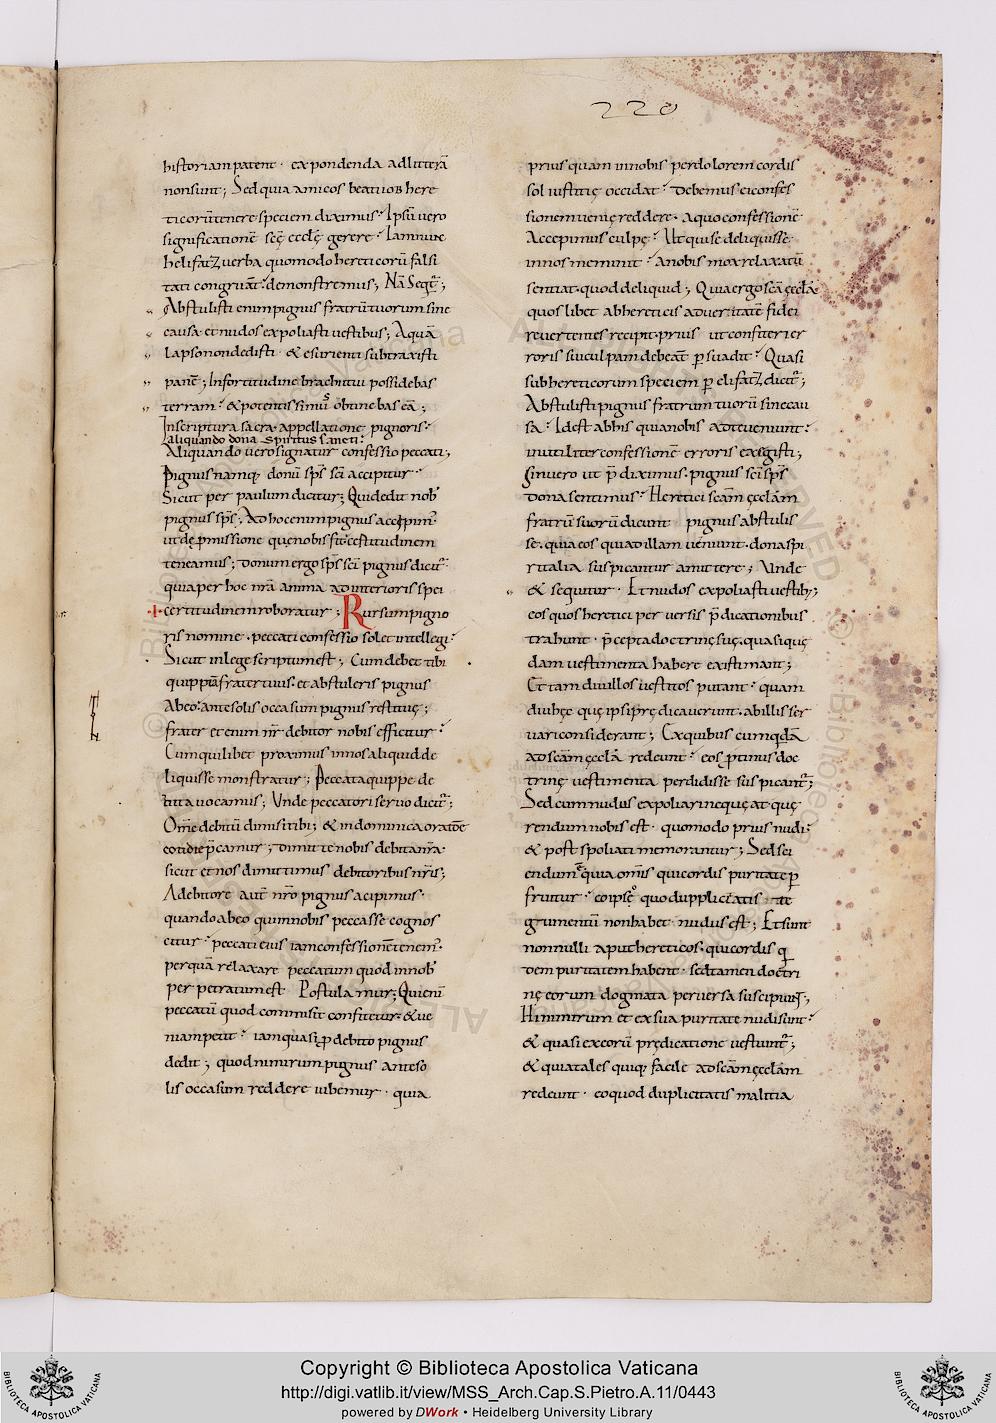 220
historiam patent · exponenda ad litterā
non sunt ; Sed quia amicos beati iob here
ticorū tenere speciem diximus · Ipsū vero
significationē scę ecclę gerere · Iam nunc
helifatz verba quomodo hereticorū falsi
tati congruāt · demonstremus ; Nā seqt̄ ;
Abstulisti enim pignus fratrū tuorum sine
causa · et nudos expoliasti vestibus ; Aquā
lapso non dedisti · & esurienti subtraxisti
panē ; In fortitudine brachii tui possidebas
terram · & potentissimus obtinebas eā ;
In scriptura sacra · appellatione pignoris ·
aliquando dona spiritus sancti ·
Aliquando vero signatur confessio peccati ;
Pignus namq; donū sp̄s sc̄i accipitur ·
Sicut per paulum dicitur ; Qui dedit nob
pignus sp̄s ; Ad hoc enim pignus accepim ·
ut de p̄missione quę nobis fit · certitudinem
teneamus ; donum ergo sp̄s sc̄i pignus dicit̄ ·
quia per hoc nr̄a anima ad interioris spei
certitudinem roboratur ; Rursum pigno
ris nomine · peccati confessio solet intellegi ·
Sicut in lege scriptum est ; Cum debet tibi
quippiā frater tuus · et abstuleris pignus
ab eo · ante solis occasum pignus restitue ;
frater etenim nr̄ debitor nobis efficitur ·
Cum quilibet proximus in nos aliquid de
liquisse monstratur ; Peccata quippe de
bita vocamus ; Unde peccatori servo dicit̄ ;
Om̄e debitū dimisi tibi ; & in dominica oratōe
cotidie p̄camur ; dimitte nobis debita nr̄a ·
sicut et nos dimittimus debitoribus nr̄is ;
A debitore aut̄ nr̄o pignus acipimus ·
quando ab eo qui in nobis peccasse cognos
citur · peccati eius iam confessionē tenem̄ ·
per quā relaxare peccatum quod in nob
perpetratum est Postulamur ; Qui enī
peccatū quod commisit confitetur · & ve
niam petit · iam quasi p̄ debito pignus
dedit ; quod nimirum pignus ante so
lis occasum reddere iubemur · quia
prius quam in nobis per dolorem cordis
sol iustitię occidat · debemus ei confes
sionem venię reddere · a quo confessionē
accepimus culpę · Ut qui se deliquisse
in nos meminit · a nobis mox relaxatū
sentiat · quod deliquid ; Quia ergo scā ęcclā
quoslibet ab hereticis ad veritatē fidei
revertentes recipit · prius ut confiteri er
roris sui culpam debeāt p̄suadit · Quasi
sub hereticorum speciem p̄ elifatz dicit̄ ;
Abstulisti pignus fratrum tuorū sine cau
sa · Id est ab his qui a nobis ad te veniunt ·
inutiliter confessionē erroris exegisti ;
Sin vero ut p̄diximus · pignus sc̄i sp̄s
dona sentimus · Heretici scām ęcclām
fratrū suorū dicunt pignus abstulis
se · quia eos qui ad illam veniunt · dona spi
ritalia suspicantur amittere ; Unde
& sequitur · Et nudos expoliasti vestib; ;
eos quos heretici perversis p̄dicationibus
trahunt · p̄cepta doctrinę suę · quasi quę
dam vestimenta habere existimant ;
Et tam diu illos vestitos putant · quam
diu hęc quę ipsi p̄dicaverunt · ab illis ser
vari considerant ; Ex quibus cum q̄dā
ad scām ęcclā redeunt · eos p̄tinus doc
trinę vestimenta perdidisse suspicant̄ ;
Sed cum nudus expoliari nequeat · quę
rendum nobis est · quomodo prius nudi ·
& post spoliati memorantur ; Sed sci
endum ē quia om̄is qui cordis puritate p̄
fruitur · eo ipso quo dupplicitatis te
gumentū non habet · nudus est ; Et sunt
nonnulli aput hereticos · qui cordis q̄
dem puritatem habent · sed tamen doctri
nę eorum dogmata perversa suscipiunt ;
Hi nimirum et ex sua puritate nudi sunt ·
& quasi ex eorū prędicatione vestiunt̄ ;
& quia tales quiq; facile ad scām ęcclām
redeunt · eo quod duplicitatis malitia
Copyright © Biblioteca Apostolica Vaticana
http://digi.vatlib.it/view/MSS_Arch.Cap.S.Pietro.A.11/0443
powered by DWork • Heidelberg University Library
BIBLIOTECA APOSTOLICA VATICANA
BIBLIOTECA APOSTOLICA VATICANA